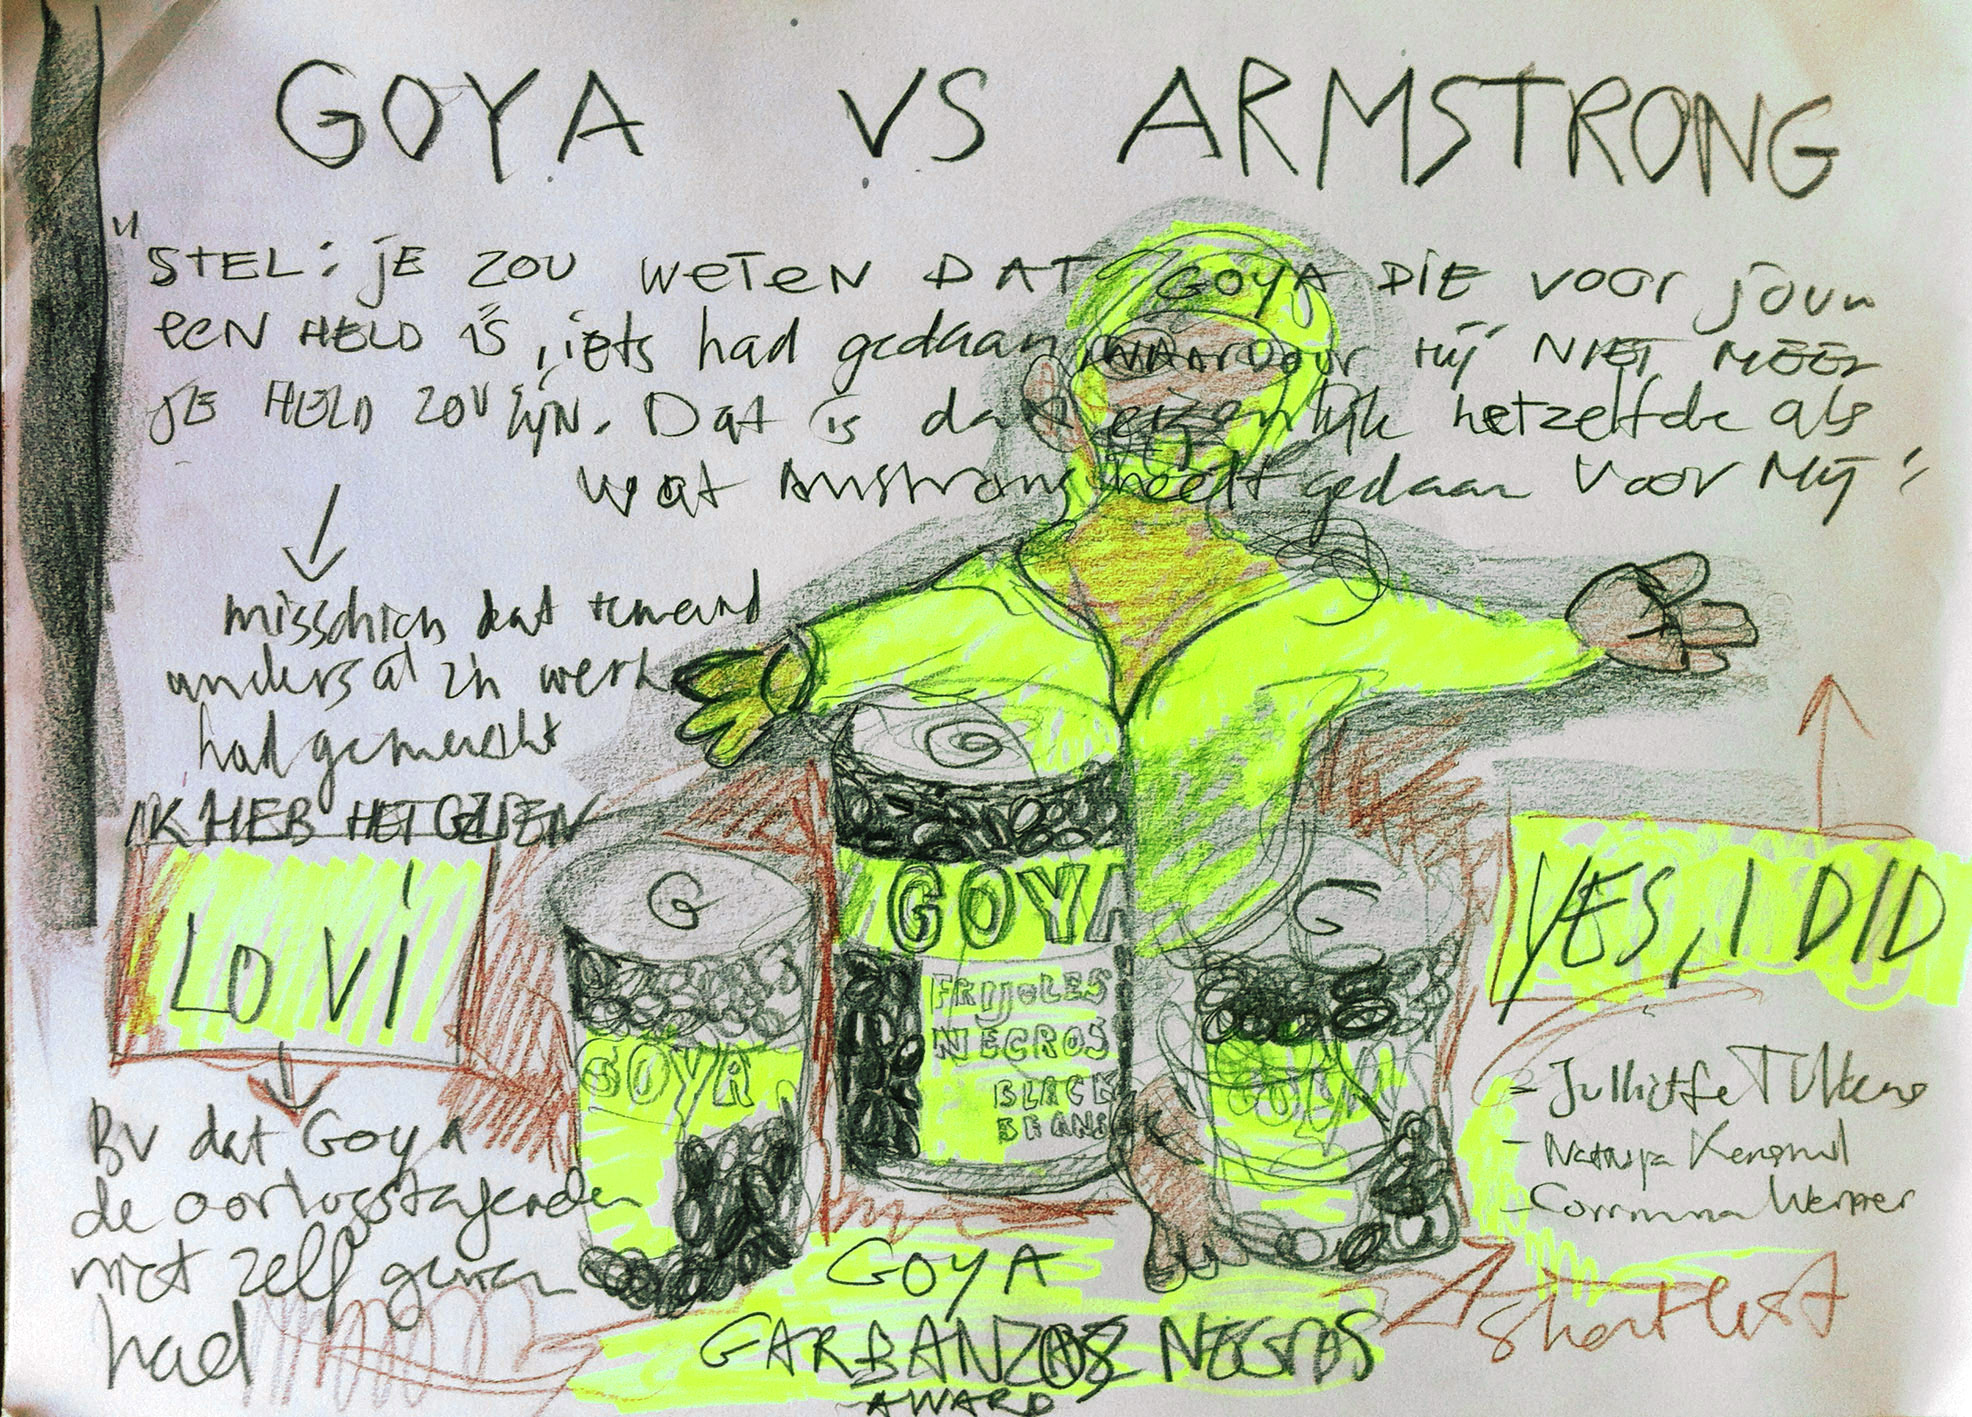 GOYA VS ARMSTRONG
"STEL: jE ZOU WETEN DAT GOYA DIE VOOR jouw
eeN HELD is, iets had gedaan WAARDOOR Hij NIET MEER
JE HELD ZOU ZijN. Dat is dan eigenlijk hetzelfde als
wat Amstrong heeft gedaan VOOR Mij"
misschien dat iemand
anders al zn werk
had gemaakt
IK HEB HET GEZIEN
LO VI
BV dat Goya
de oorlogstaferelen
niet zelf gezien
had
G
GOYA
G
GOYA
FRIJOLES
NEGROS
BLACK
BEANS
G
GOYA
YES, I DID
- Natasja Kensmil
- Werner
shortlist
GOYA
GARBANZOS NEGROS
AWARD